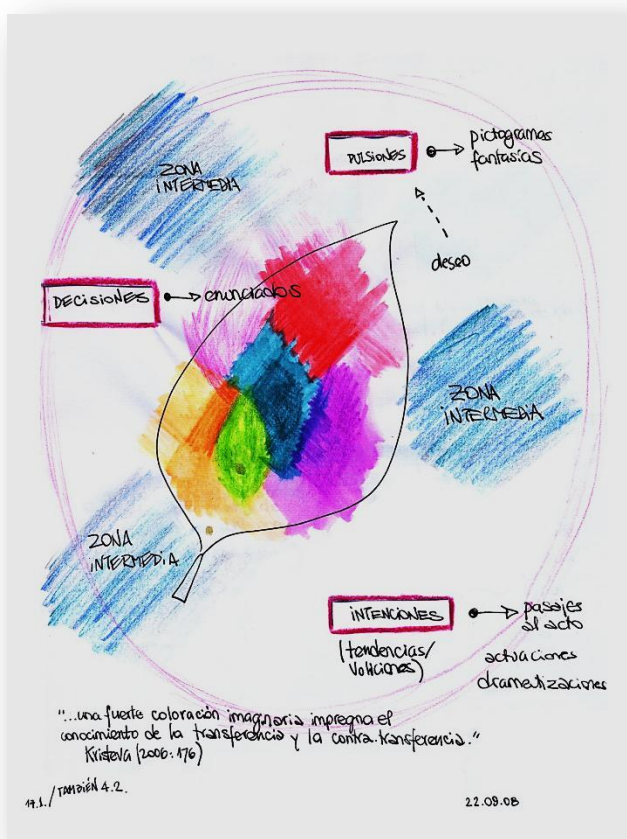 ZONA
INTERMEDIA
PULSIONES
pictogramas
fantasías
deseo
DECISIONES
enunciados
ZONA
INTERMEDIA
ZONA
INTERMEDIA
INTENCIONES
(tendencias/
Voliciones)
pasajes
al acto
actuaciones
dramatizaciones
"...una fuerte coloración imaginaria impregna el
conocimiento de la transferencia y la contra-transferencia."
Kristeva (2006:176)
17.1./TAMBIÉN 4.2.
22.09.08